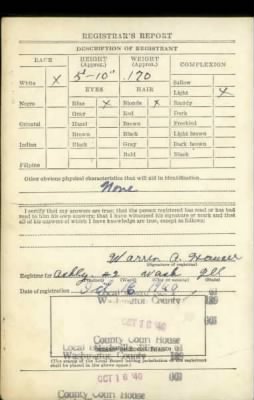 REGISTRAR'S REPORT
DESCRIPTION OF REGISTRANT
RACE HEIGHT (Approx.) WEIGHT (Approx.) COMPLEXION
White X 5'-10" 170 Sallow
EYES HAIR Light X
Negro Blue X Blonde X Ruddy
Gray Red Dark
Oriental Hazel Brown Freckled
Brown Black Light brown
Indian Black Gray Dark brown
Bald Black
Filipino
Other obvious physical characteristics that will aid in identification
None
I certify that my answers are true; that the person registered has read or has had
read to him his own answers; that I have witnessed his signature or mark and that
all of his answers of which I have knowledge are true, except as follows:
Warren A.
(Signature of registrar)
Registrar for #2 Wash Ill
Date of registration
Washington County
OCT 16 '40
County Court House
Local Board
Washington County
(The stamp of the Local Board having jurisdiction of the registrant
shall be placed in the above space)
OCT 16 '40
County Court House